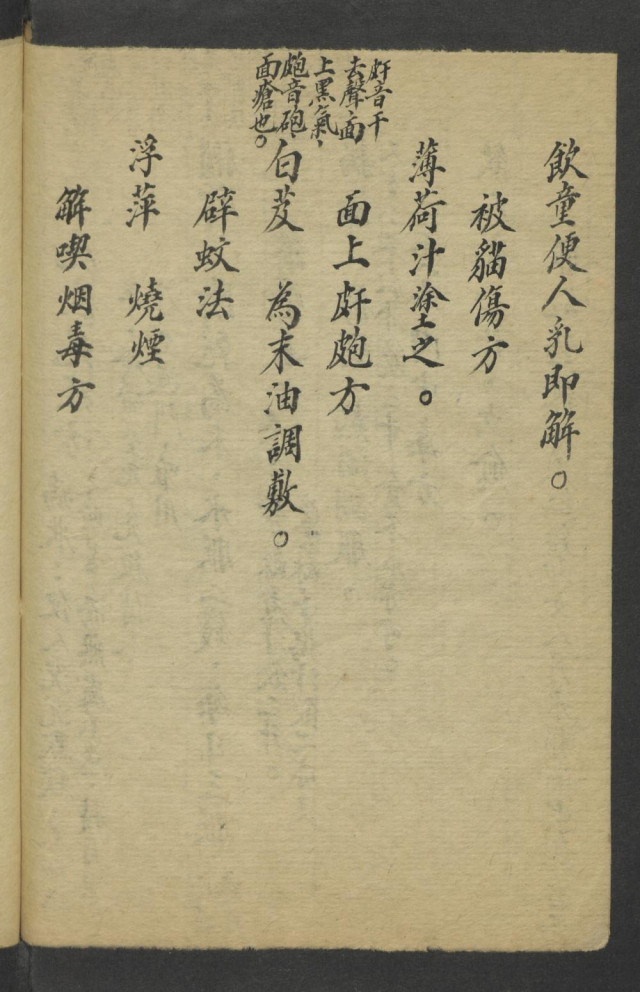 飲童便人乳即解。
被貓傷方
薄荷汁塗之。
面上皯皰方
皯音干
去聲面
上黑氣、
皰音砲、
面瘡也。
白芨　為末油調敷。
辟蚊法
浮萍　燒煙
解喫烟毒方